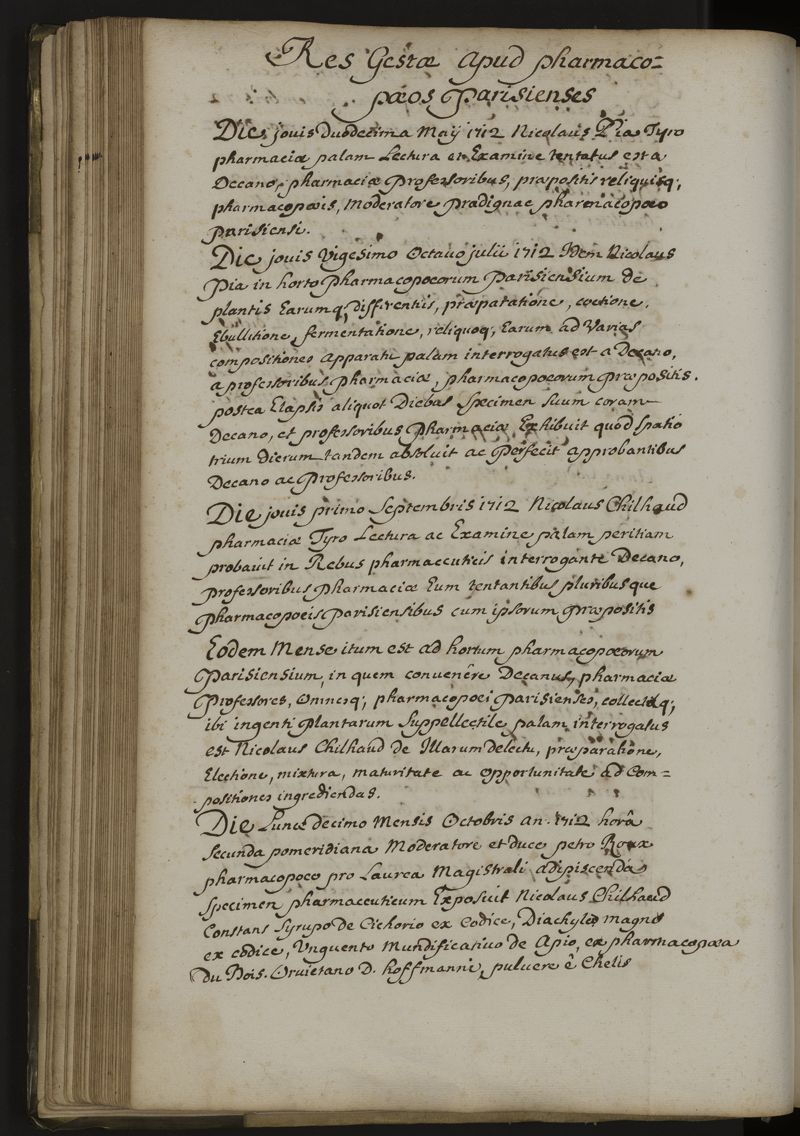 Res Gestæ apud pharmaco=
pæos Parisienses
Die jouis Duodecima Maÿ 1712 Nicolaus Pia Tyro
pharmaciæ palam Lectura et Examine tentatus est a
Decano, pharmaciæ Professoribus, præpositis reliquisq;
pharmacopæis, Moderatore Pharmacopoeo
Parisiensi.
Die jouis Vigesimo Octauo julii 1712 Idem Nicolaus
Pia in horto Pharmacopoeorum Parisiensium de
plantis Earumq; Differentiis, præparatione, coctione,
Ebullitione, fermentatione, reliquoq; Earum ad Varias
compositiones apparatu palam interrogatus est a Decano,
a professoribus Pharmaciæ, pharmacopoeorum Præpositis.
postea Elapsis aliquot Diebus Specimen suum coram
Decano, et professoribus Pharmaciæ Exhibuit quod spatio
trium Dierum tandem absoluit ac Perfecit approbantibus
Decano ac Professoribus.
Die jouis primo Septembris 1712 Nicolaus Chilhaud
pharmaciæ Tyro Lectura ac Examine palam peritiam
probauit in Rebus pharmaceuticis interrogante Decano,
professoribus Pharmaciæ Eum tentantibus pluribusque
Pharmacopoeis Parisiensibus cum ipsorum Præpositis
Eodem Mense itum est ad hortum pharmacopoeorum
Parisiensium, in quem conuenêre Decanus, pharmaciæ
Professores, Omnesq; pharmacopoei Parisienses, collectâq;
ibi ingenti Plantarum Suppellectile palam interrogatus
est Nicolaus Chilhaud de Illarum delectu, præparatione,
Electione, mixtura, maturitate ac opportunitate ad Com=
positiones ingrediendas.
Die Lunæ decimo Mensis Octobris an. 1712 horâ
secunda pomeridiana Moderatore et duce petro Roux
pharmacopoeo pro Laurea Magistrali adipiscenda
specimen pharmaceuticum Exposuit Nicolaus Chilhaud
Constans Syrupo de Cichorio ex Codice, Diachylo magno
ex codice, Vnguento Mundificatiuo de Apio, ex pharmacopœa
Du Bois. Oruietano D. hoffmanni, puluere ê Chelis